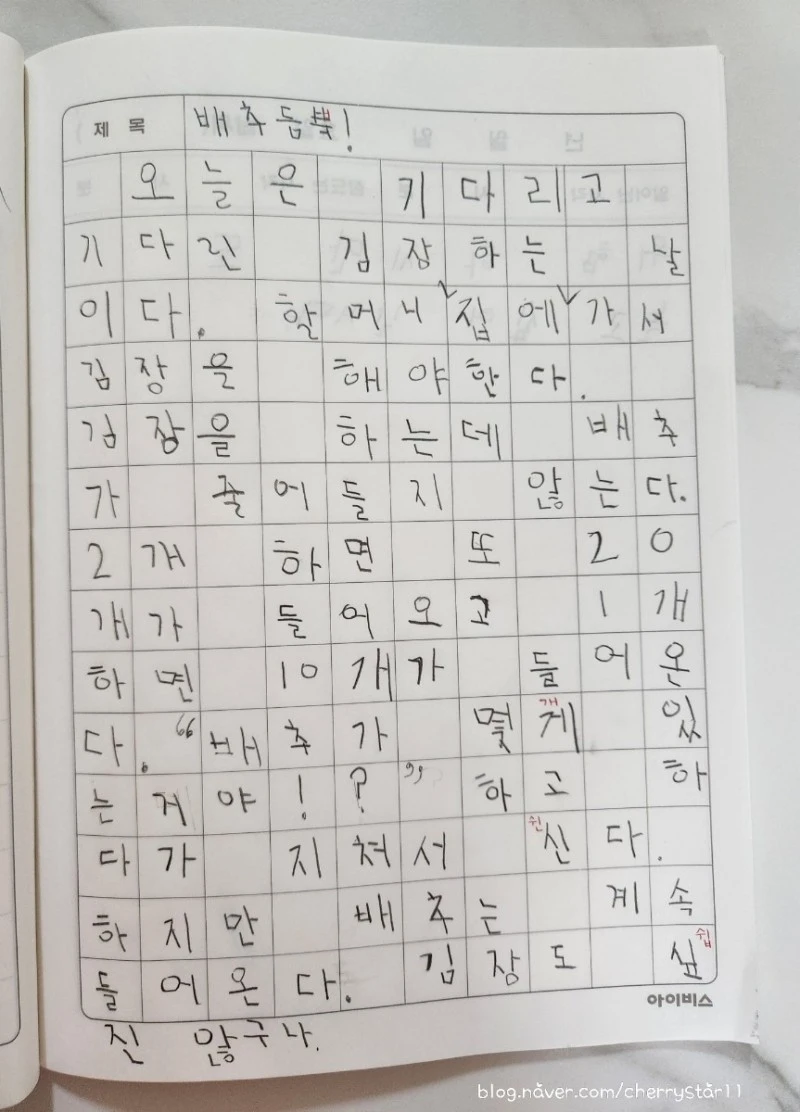 제 목 배추듬뿍!
오늘은 기다리고
기다린 김장하는 날
이다. 할머니∨집에∨가서
김장을 해야한다.
김장을 하는데 배추
가 줄어들지 않는다.
2개 하면 또 20
개가 들어오고 1개
하면 10개가 들어온
다. “배추가 몇게 있
개
는거야!?” 하고 하
다가 지쳐서 신다.
쉰
하지만 배추는 계속
들어온다. 김장도 싶
쉽
진 않구나.
아이비스
blog.naver.com/cherrystar11